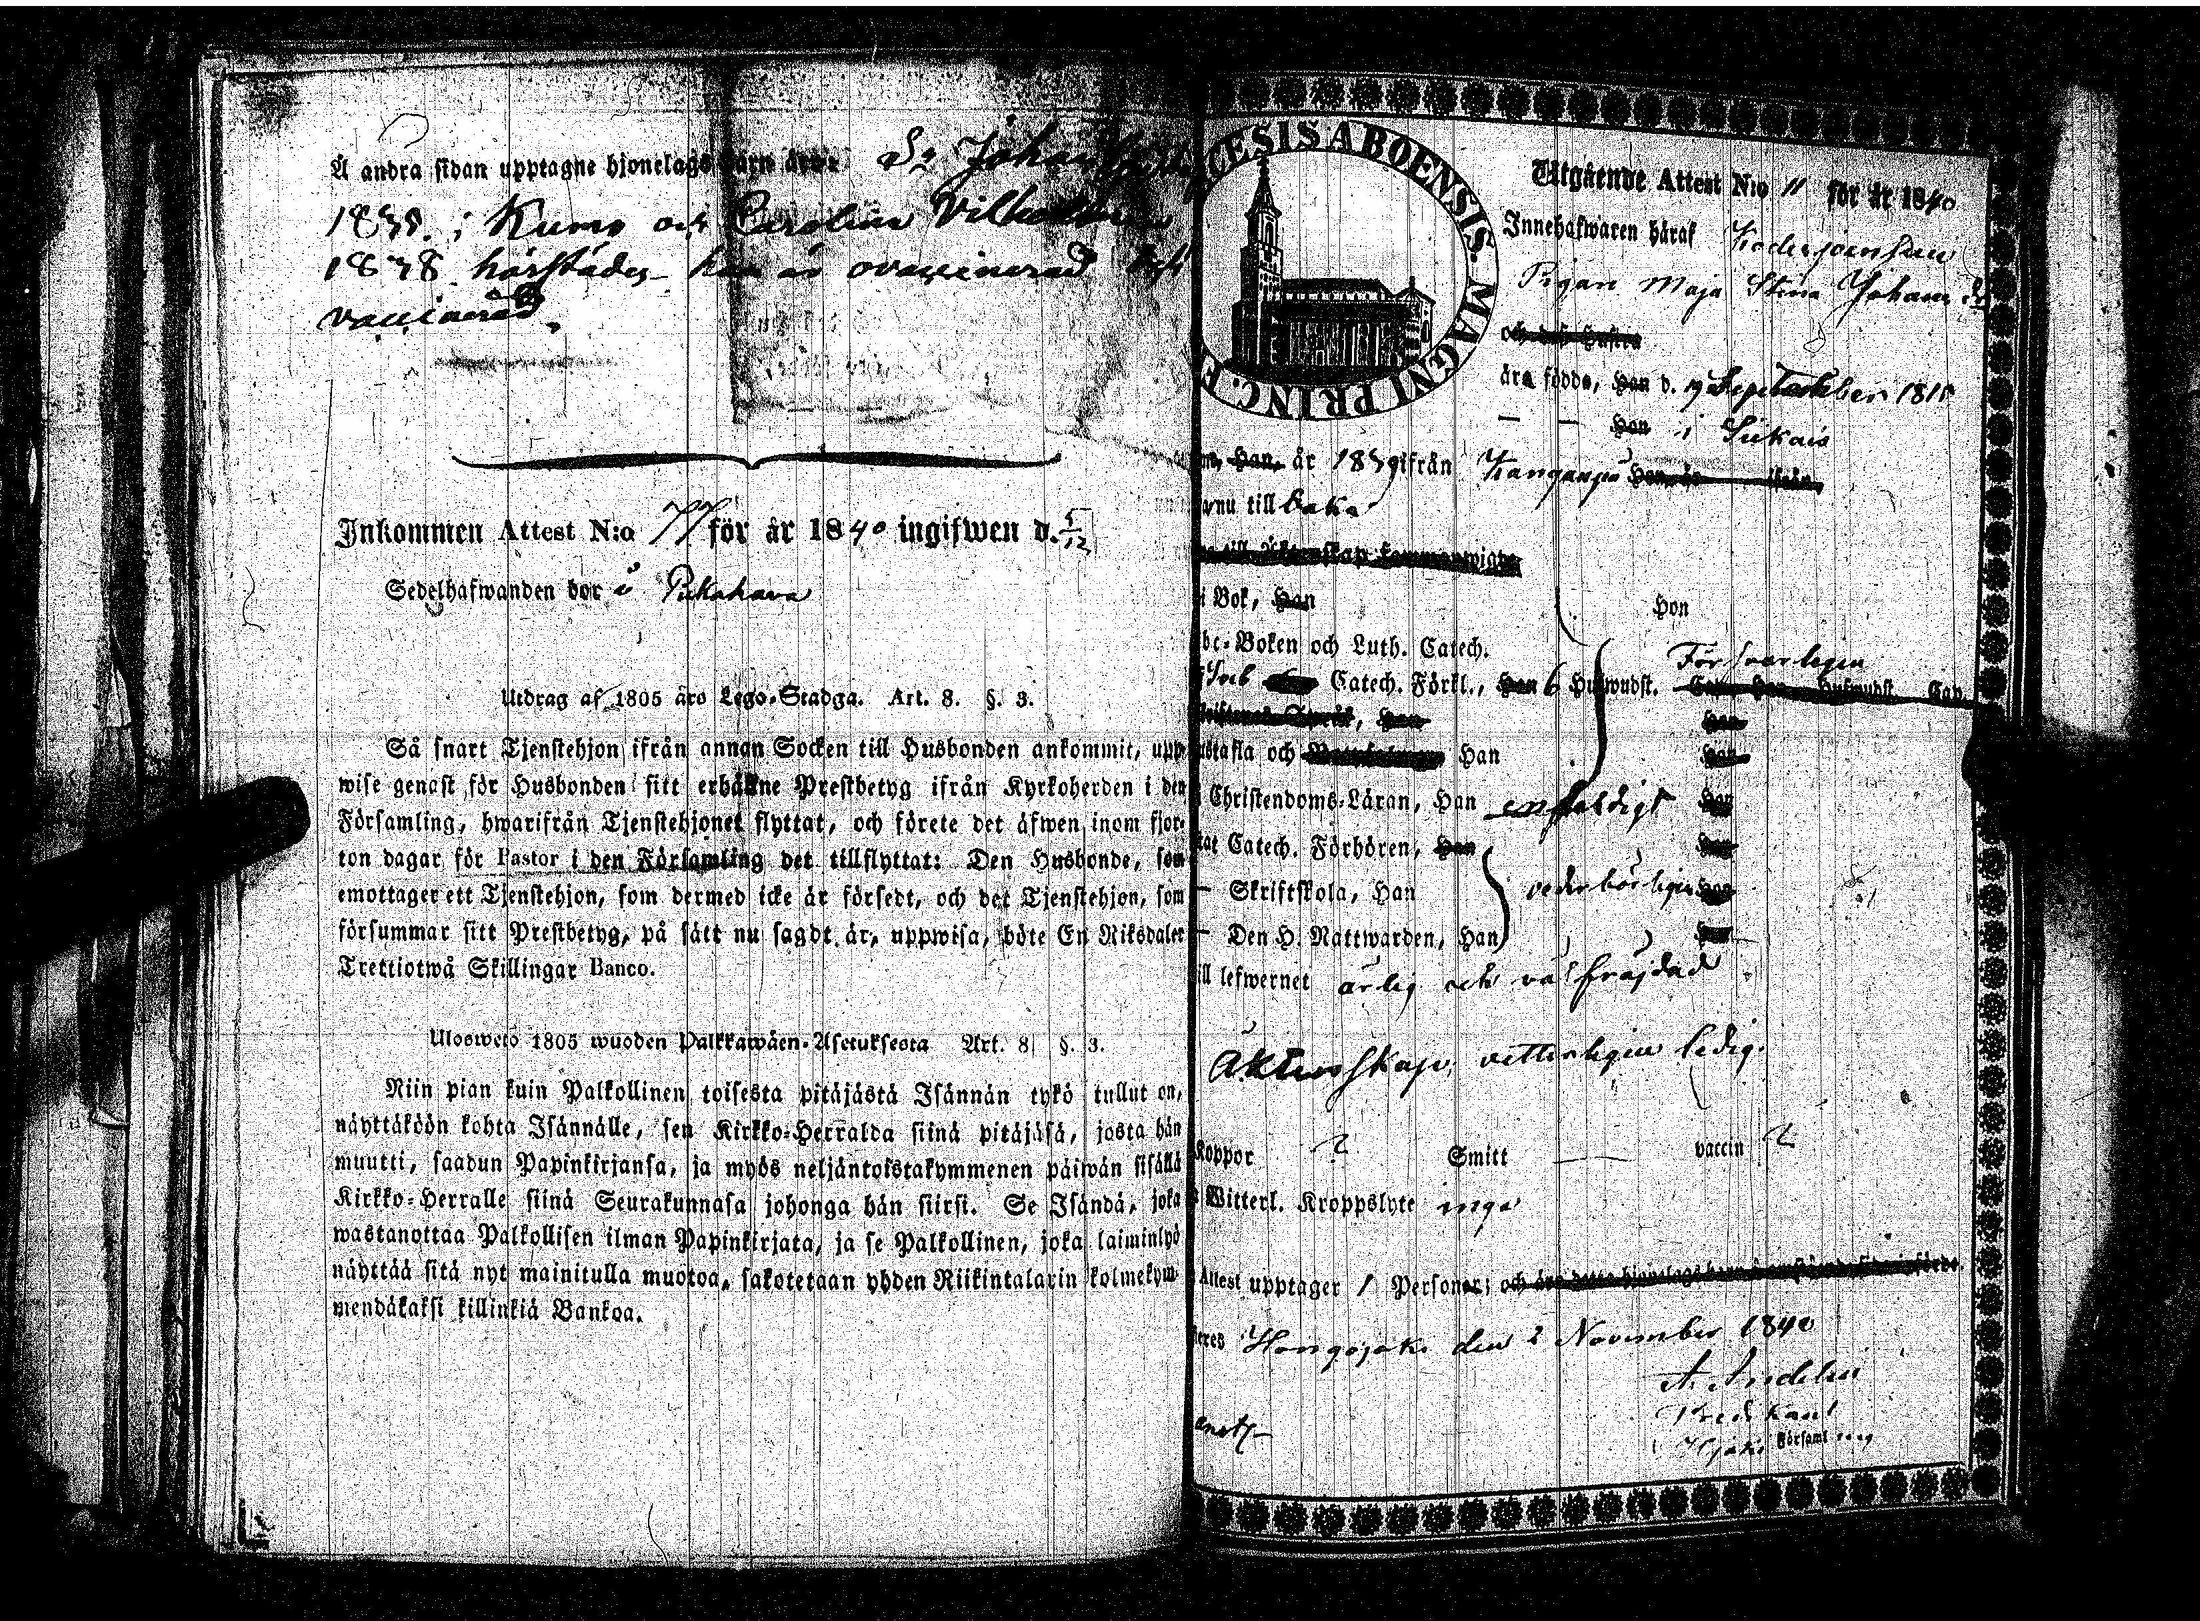 Å andra sidan upptagne hjonelags barn äro: Sn Johan
1835 i Kumo och Carolina Vilhelmina
1838 härstädes han är ovaccinerad
vaccinerad.
Inkommen Attest N:o 77 för år 1840 ingifwen d. 5/12
Sedelhafwanden bor i Pukahava
Utdrag af 1805 års Lego-Stadga. Art. 8. §. 3.
Så snart Tjenstehjon ifrån annan Socken till Husbonden ankommit, upp-
wise genast för Husbonden sitt erhållne Prestbetyg ifrån Kyrkoherden i den
Församling, hwarifrån Tjenstehjonet flyttat, och förete det äfwen inom fjor-
ton dagar för Pastor i den Församling det tillflyttat: Den Husbonde, som
emottager ett Tjenstehjon, som dermed icke är försedt, och det Tjenstehjon, som
försummar sitt Prestbetyg, på sätt nu sagdt är, uppwisa, böte En Riksdaler
Trettiotwå Skillingar Banco.
Uloswetö 1805 wuoden Palkkawäen-Asetuksesta Art. 8 §. 3.
Niin pian kuin Palkollinen toisesta pitäjästä Isännän tykö tullut on,
näyttäköön kohta Isännälle, sen Kirkko-Herralda siinä pitäjäsä, josta hän
muutti, saadun Papinkirjansa, ja myös neljäntoistakymmenen päiwän sisällä
Kirkko-Herralle siinä Seurakunnasa johonga hän siirsi. Se Isändä, joka
wastanottaa Palkollisen ilman Papinkirjata, ja se Palkollinen, joka laiminlyö
näyttää sitä nyt mainitulla muotoa, sakotetaan yhden Riikintalarin kolmekym-
mendäkaksi killinkiä Bankoa.
CESIS ABOENSIS. MAGNI PRINC. F
Utgående Attest N:o 11 för år 1840
Innehafwaren häraf
Pigan Maja Stina Johans dr
och dess Hustru
äro födde, Han d. 19 September 1815
Hon i Siikais
Han, år 1839 ifrån Kanganpä Hon, år ifrån
nu till baka
till Äktenskap sammanwigde
i Bok, Han Hon
bc-Boken och Luth. Catech.
Försvarligen
Catech. Förkl., Han 6 Hufwudst. Cat. Hon Hufwudst. Cap.
Språk, Han Hon
ustafla och Han Hon
Christendoms-Läran, Han enfaldigt Hon
Catech. Förhören, Han Hon
Skriftskola, Han vederbörligen Hon
Den H. Nattwarden, Han Hon
ill lefwernet ärlig och väl fräjdad
Äktenskap vetterligen ledig.
Koppor ? Smitt — vaccin ?
Witterl. Kroppslyte inga
Attest upptager 1 Personer; och äro detta hjonelags barn å omstående sida införde.
Hongojoki den 2 November 1840
A. Andelin
Predikant
i Hjoki Församling